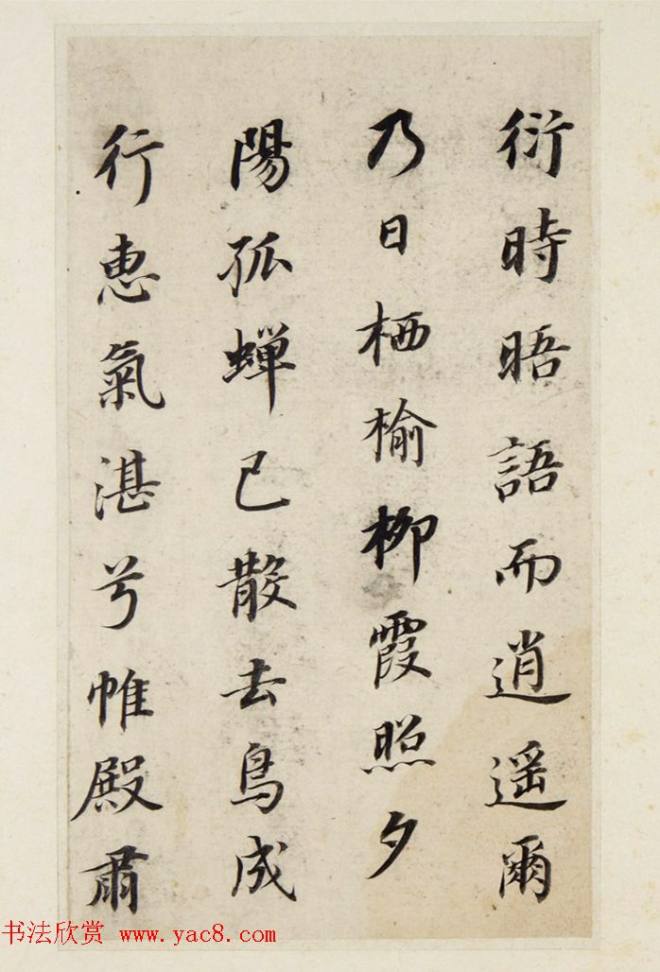 衍時晤語而逍遥爾
乃日栖榆柳霞照夕
陽孤蟬已散去鳥成
行惠氣湛兮帷殿肅
书法欣赏 www.yac8.com